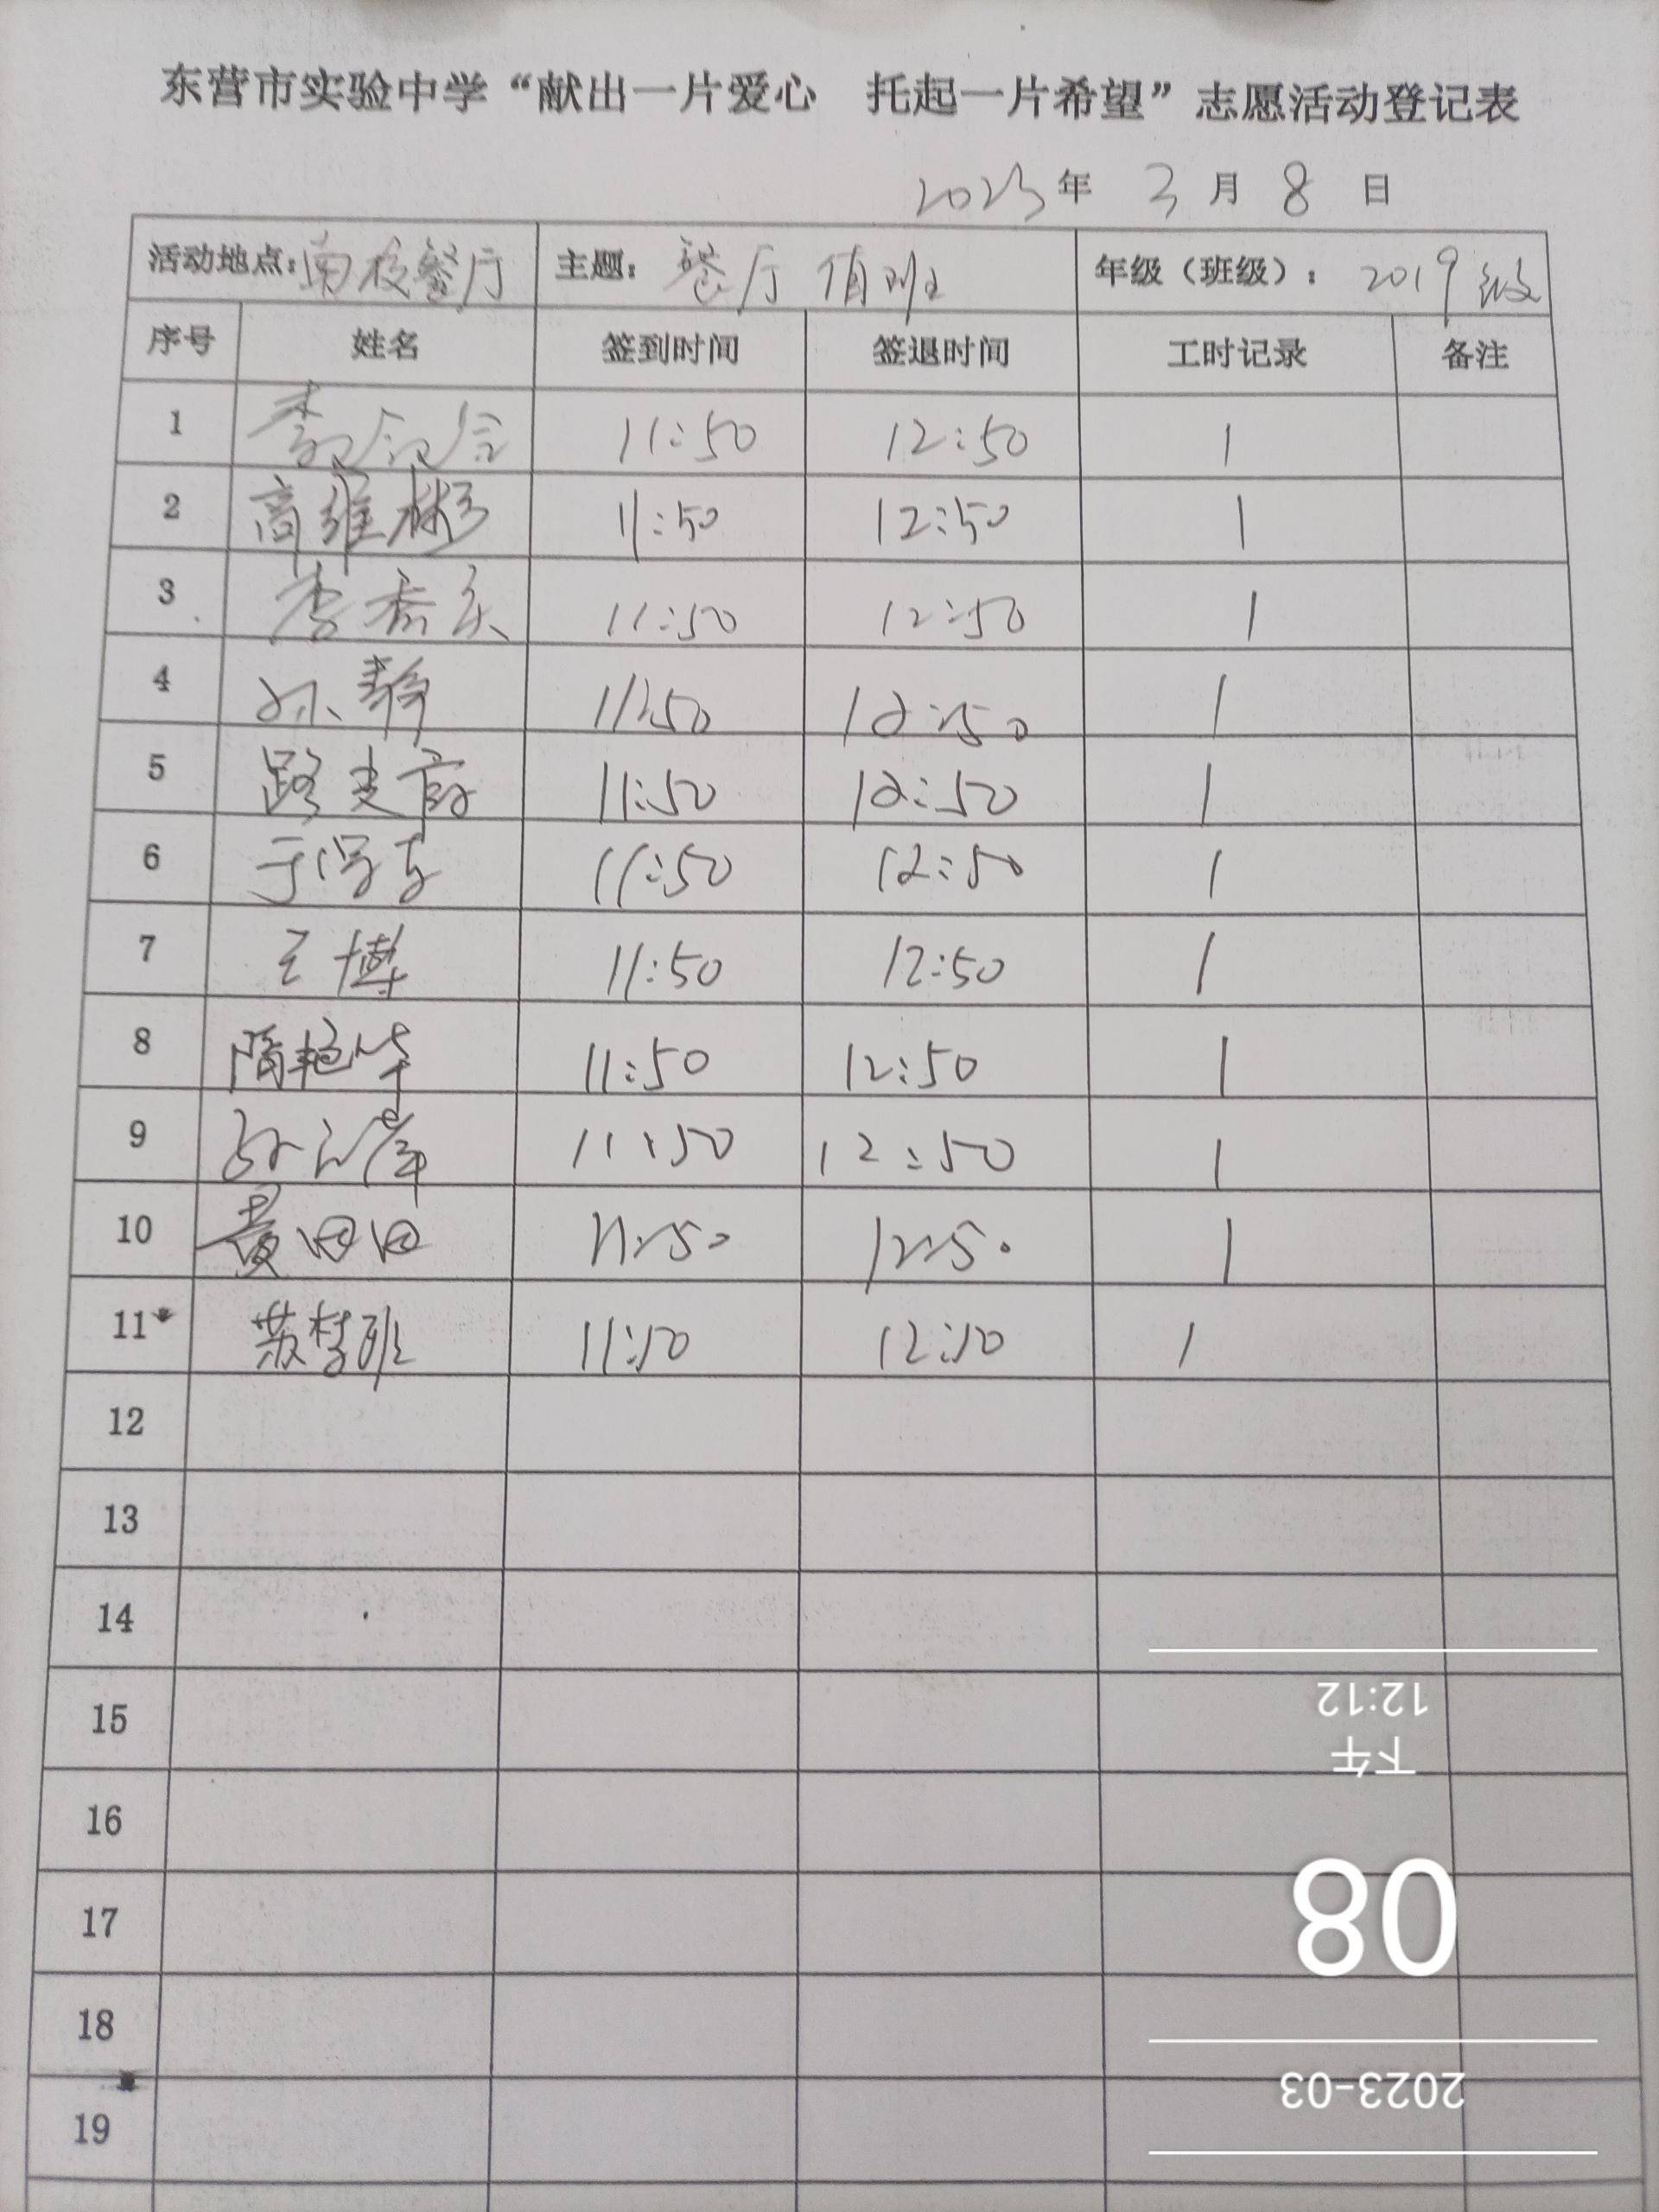 东营市实验中学“献出一片爱心 托起一片希望”志愿活动登记表
2023年 3 月 8 日
活动地点：南校餐厅 主题：餐厅值班 年级（班级）：2019级
序号 姓名 签到时间 签退时间 工时记录 备注
1 11:50 12:50 1
2 高维彬 11:50 12:50 1
3 李 11:50 12:50 1
4 孙静 11:50 12:50 1
5 路 11:50 12:50 1
6 于 11:50 12:50 1
7 王博 11:50 12:50 1
8 隋艳华 11:50 12:50 1
9 孙 11:50 12:50 1
10 田田 11:50 12:50 1
11 苏梦班 11:50 12:50 1
12
13
14
15
16
17
18
19
2023-03
08
下午
12:12